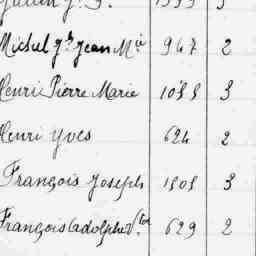 Michel Yes Jean Mie 947 2
Henri Pierre Marie 1055 3
Henri Yves 624 2
François Joseph 1505 3
François Adolphe Vtor 629 2